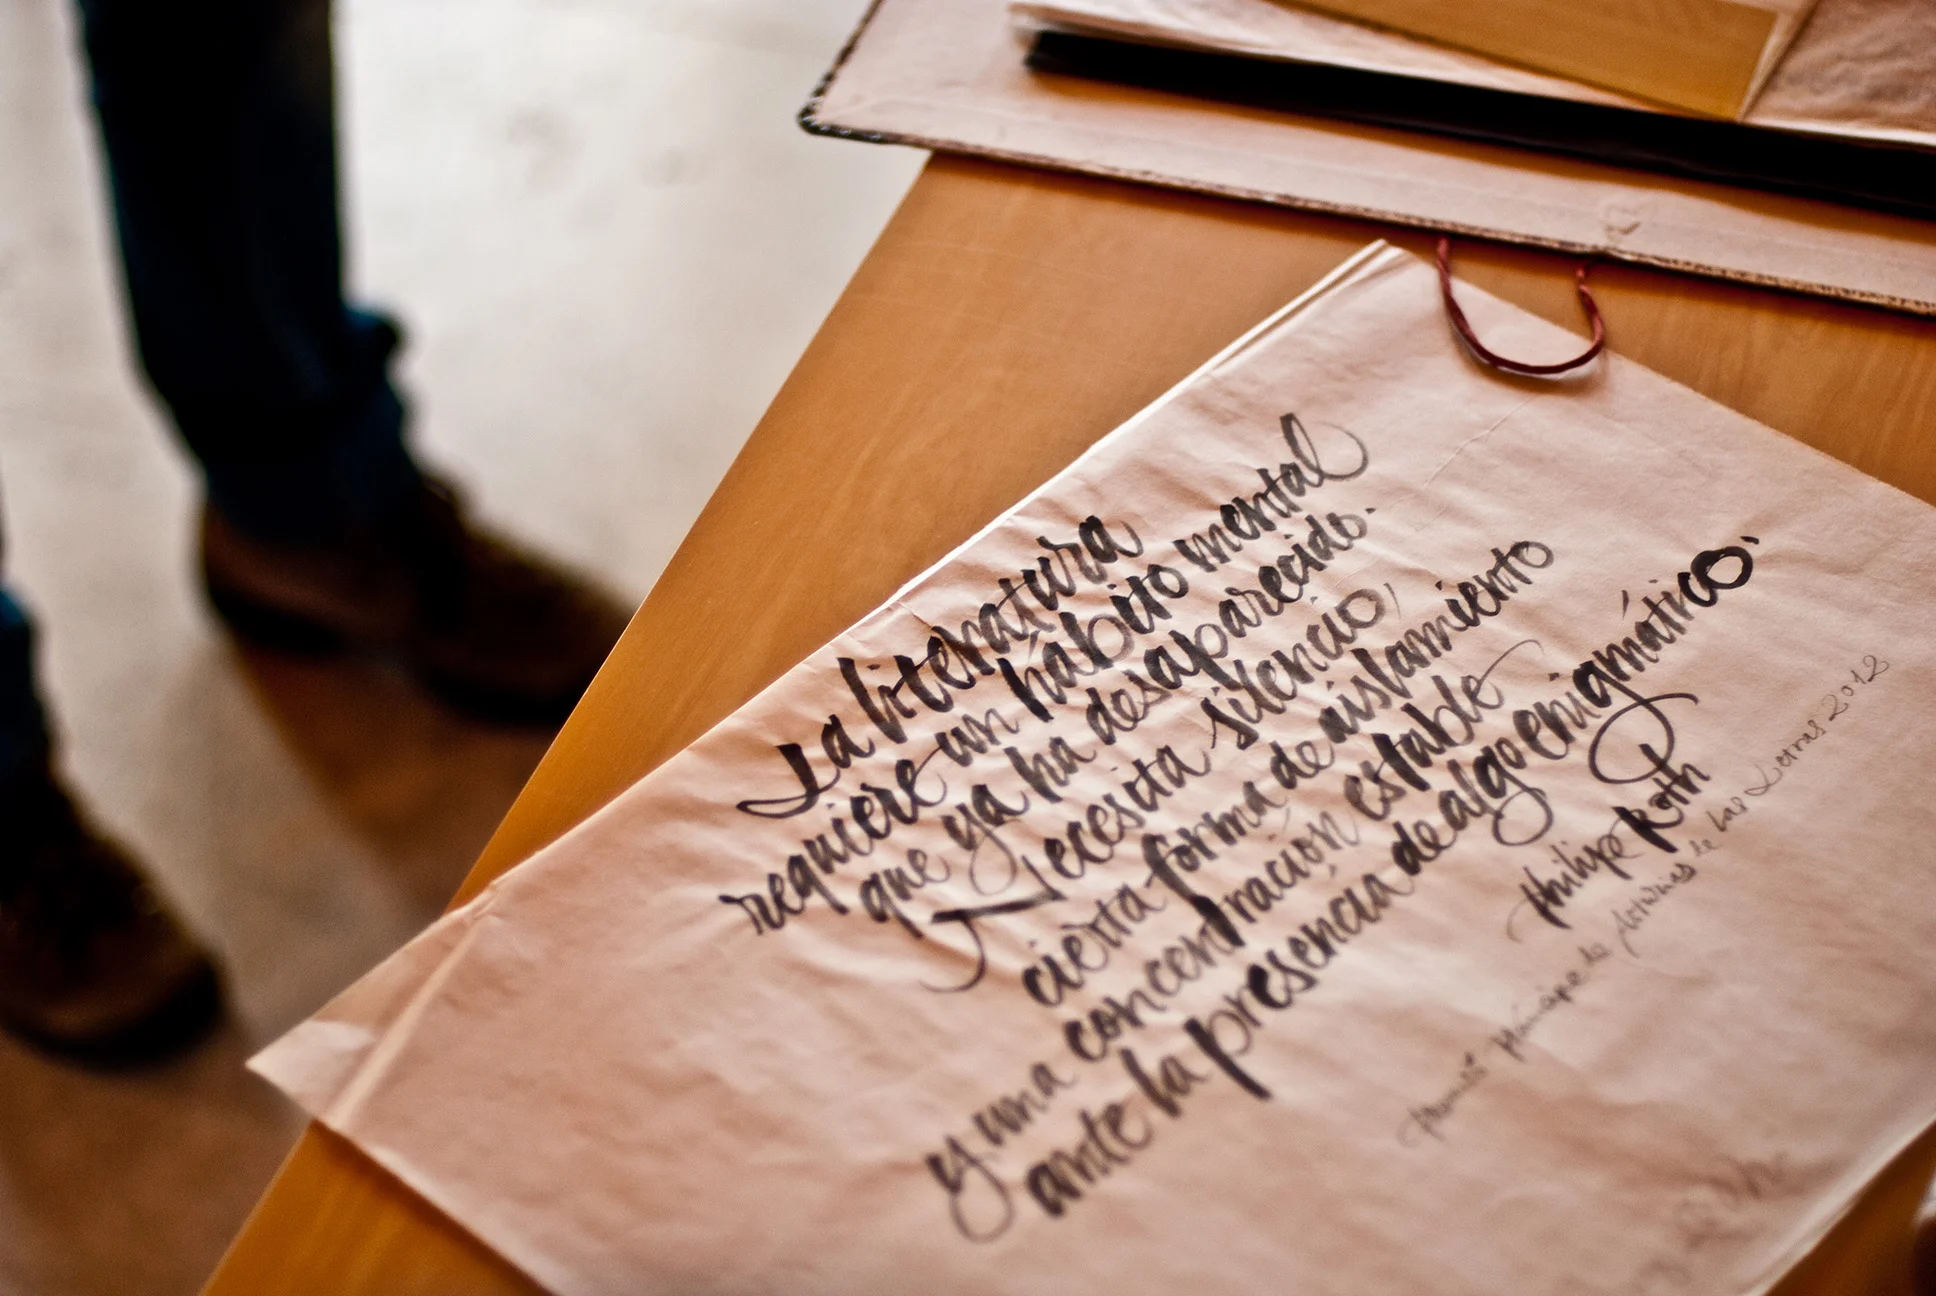 La literatura
requiere un hábito mental
que ya ha desaparecido.
Necesita silencio,
cierta forma de aislamiento
y una concentración estable
ante la presencia de algo enigmático.
Philipe Roth
Premio Príncipe de Asturias de las Letras 2012